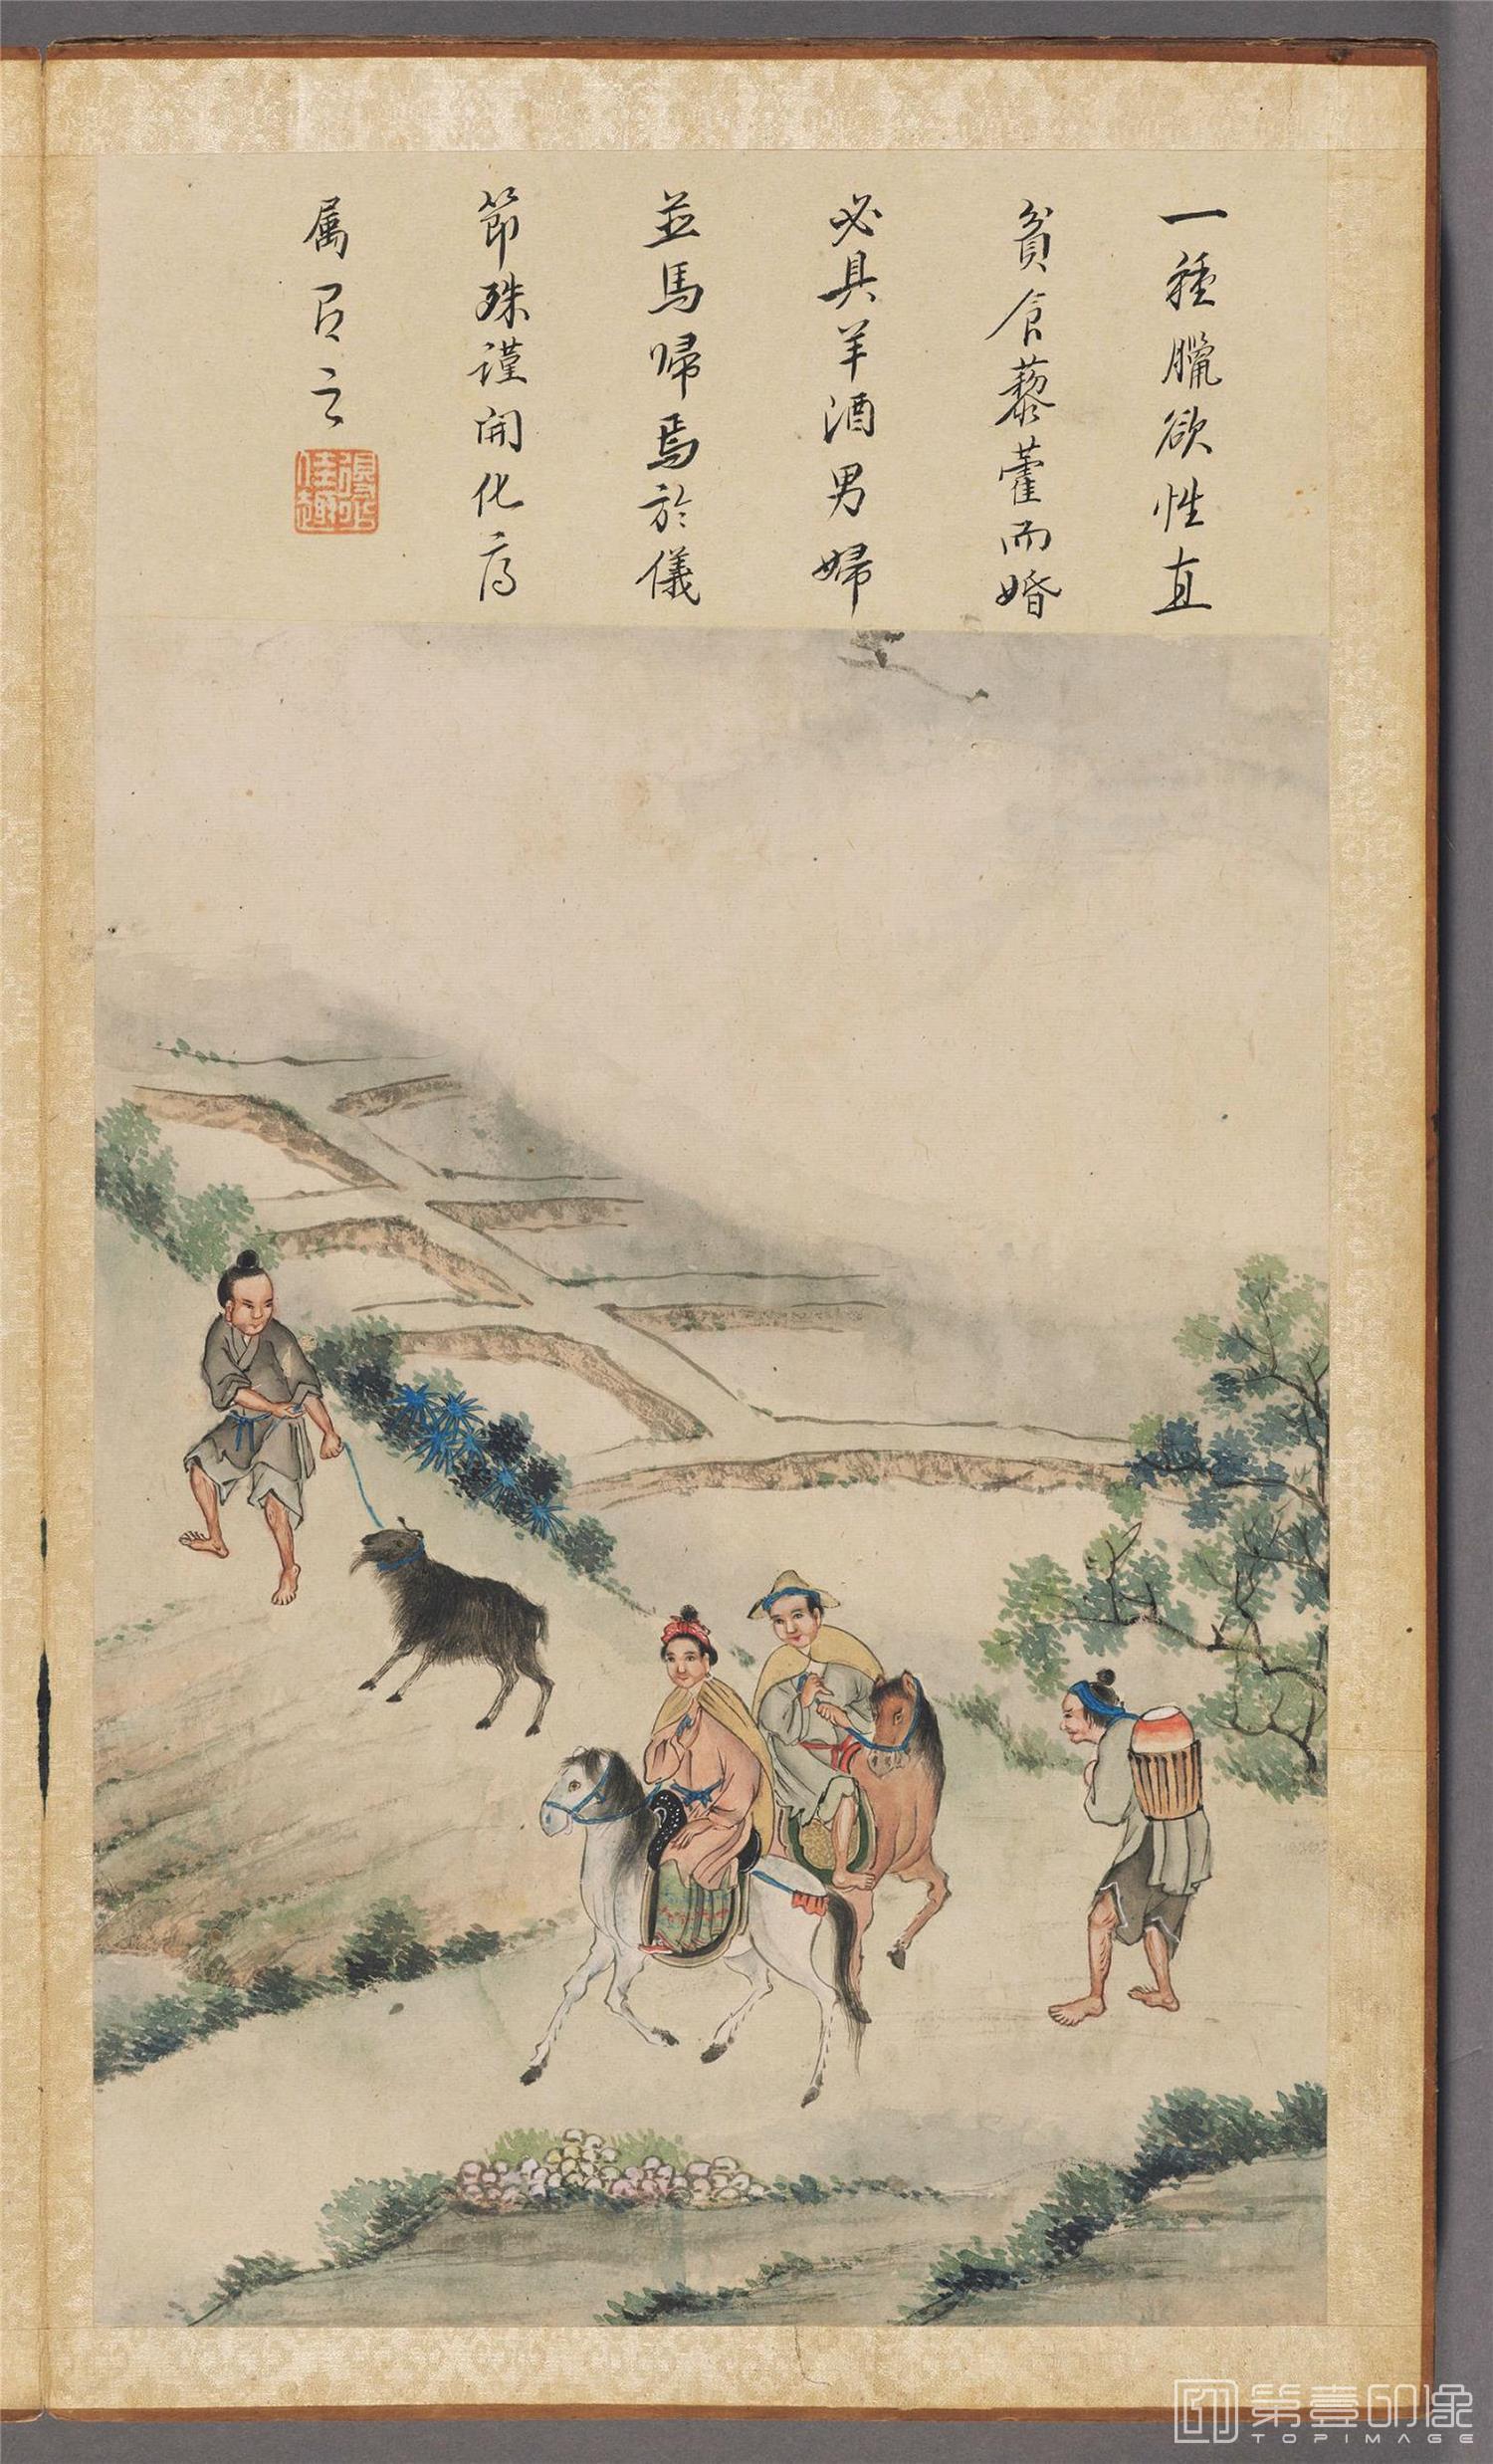 一種臘欲性直
貧食藜藿而婚
必具羊酒男婦
並馬帰焉於儀
節殊謹開化府
属有之
第壹印像
TOPIMAGE